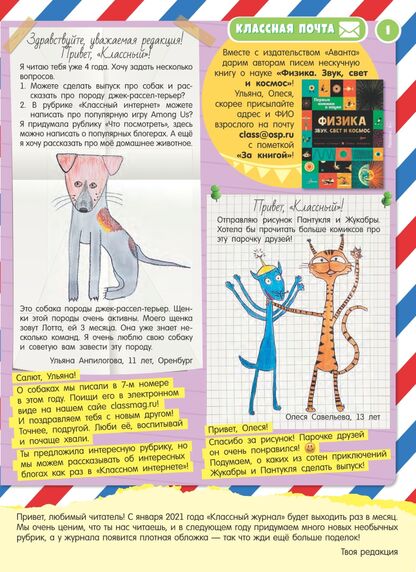 Здравствуйте, уважаемая редакция!
Привет, «Классный»!
Я читаю тебя уже 4 года. Хочу задать несколько
вопросов.
1. Можете сделать выпуск про собак и рас-
сказать про породу джек-рассел-терьер?
2. В рубрике «Классный интернет» можете
написать про популярную игру Among Us?
Я придумала рублику «Что посмотреть», здесь
можно написать о популярных блогерах. А ещё
я хочу рассказать про моё домашнее животное.
Это собака породы джек-рассел-терьер. Щен-
ки этой породы очень активны. Моего щенка
зовут Лотта, ей 3 месяца. Она уже знает не-
сколько команд. Я очень люблю свою собаку
и советую вам завести эту породу.
Ульяна Анпилогова, 11 лет, Оренбург
Салют, Ульяна!
О собаках мы писали в 7-м номере
в этом году. Поищи его в электронном
виде на нашем сайте classmag.ru!
И поздравляем тебя с новым другом!
Точнее, подругой. Люби её, воспитывай
и почаще хвали.
Ты предложила интересную рубрику, но
мы можем рассказывать об интересных
блогах как раз в «Классном интернете»!
КЛАССНАЯ ПОЧТА
1
Вместе с издательством «Аванта»
дарим авторам писем нескучную
книгу о науке «Физика. Звук, свет
и космос»!
Ульяна, Олеся,
скорее присылайте
адрес и ФИО
взрослого на почту
class@osp.ru
с пометкой
«За книгой»!
ФИЗИКА
ЗВУК, СВЕТ И КОСМОС
Привет, «Классный»!
Отправляю рисунок Пантукля и Жукабры.
Хотела бы прочитать больше комиксов про
эту парочку друзей!
Олеся Савельева, 13 лет
Привет, Олеся!
Спасибо за рисунок! Парочке друзей
он очень понравился!
Подумаем, о каких из сотен приключений
Жукабры и Пантукля сделать выпуск!
Привет, любимый читатель! С января 2021 года «Классный журнал» будет выходить раз в месяц.
Мы очень ценим, что ты нас читаешь, и в следующем году придумаем много новых необычных
рубрик, а у журнала появится плотная обложка — так что жди ещё больше поделок!
Твоя редакция